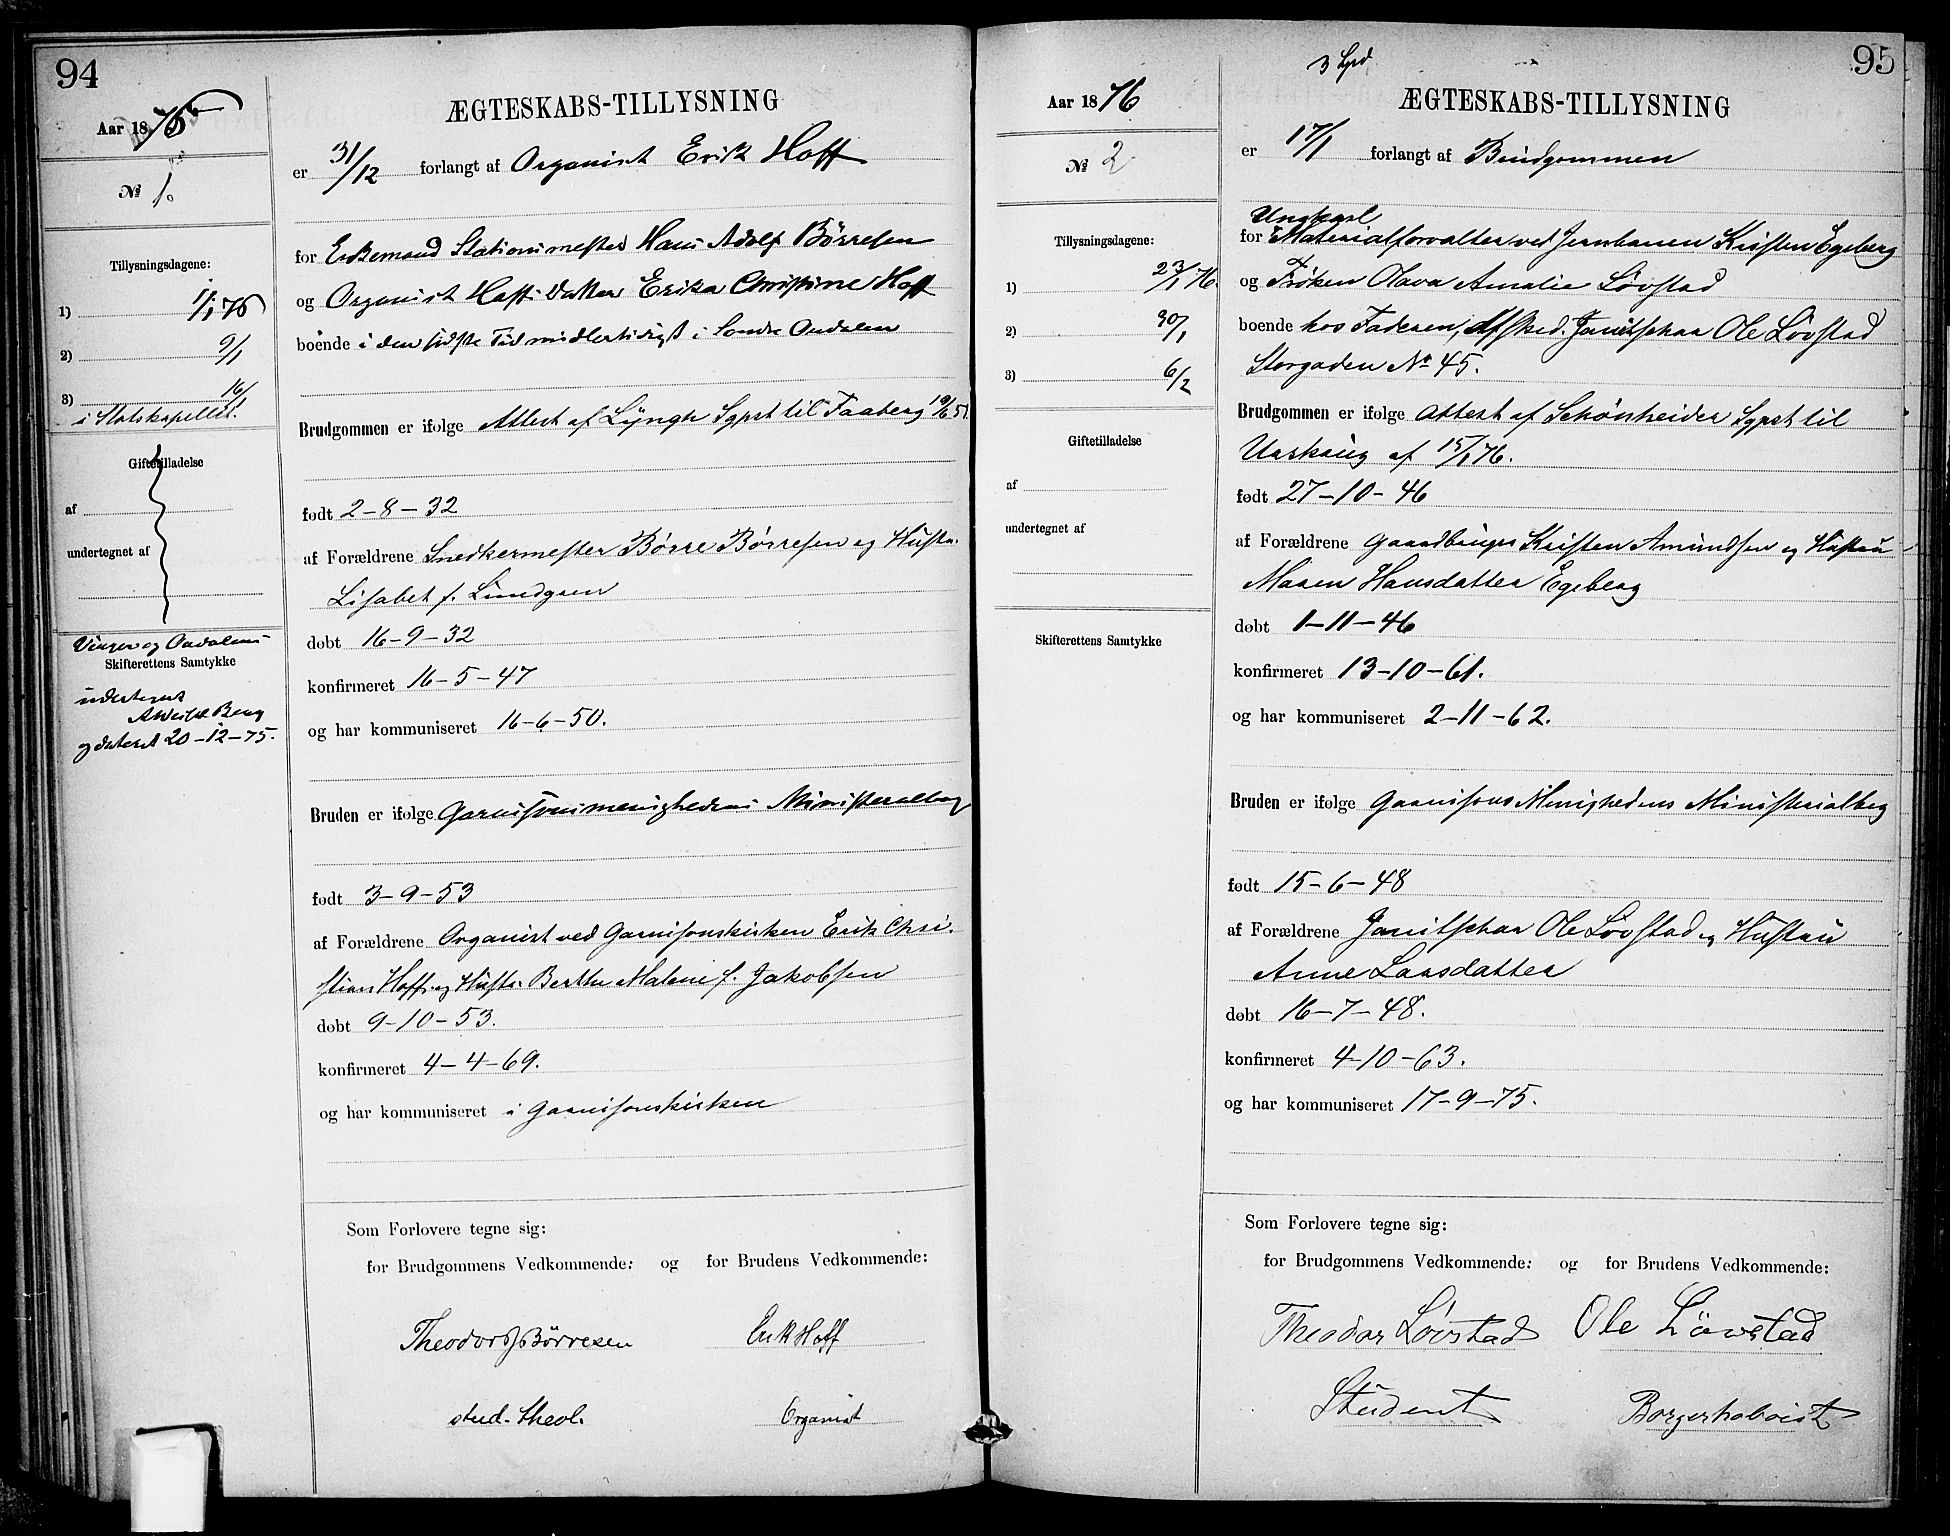 94
Aar 1875
№ 1.
Tillysningsdagene:
1) 1/1 76
2) 9/1
3) 16/1
i Slotskapellet.
Giftetilladelse
af
undertegnet af
Vinger og Oudalens
Skifterettens Samtykke
undertegnet
Berg
og dateret 20-12-75.
ÆGTESKABS-TILLYSNING
er 31/12 forlangt af Organist Erik Hoff
for Enkemand Stationsmester Hans Adolf Börresen
og Organist Hoffs Datter Erika Christine Hoff
boende i den sidste Tid midlertidigt i Söndre Oudalen
Brudgommen er ifølge Attest af Lyngh Sgpst til Faaberg 19/6 51
født 2-8-32
af Forældrene Snedkermester Börre Börresen og Hustru
Lisabet f. Lundgren
døbt 16-9-32
konfirmeret 16-5-47
og har kommuniseret 16-6-50.
Bruden er ifølge Garnisonsmenighedens Ministerialbog
født 3-9-53
af Forældrene Organist ved Garnisonskirken Erik Chri-
stian Hoff og Hustru Berthe Malene f. Jakobsen
døbt 9-10-53.
konfirmeret 4-4-69.
og har kommuniseret i Garnisonskirken
Som Forlovere tegne sig:
for Brudgommens Vedkommende: og for Brudens Vedkommende:
Theodor Börresen Erik Hoff
stud. theol. Organist
95
Aar 1876
№ 2
Tillysningsdagene:
1) 23/1 76
2) 30/1
3) 6/2
Giftetilladelse
af
undertegnet af
Skifterettens Samtykke
ÆGTESKABS-TILLYSNING
er 17/1 forlangt af Brudgommen
Ungkarl
for Materialforvalter ved Jernbanen Kristen Egeberg
og Frøken Olava Amalie Lövstad
boende hos Faderen, Afsked. Janitschar Ole Lövstad
Storgaden No 45.
Brudgommen er ifølge Attest af Schönheider Sgpst til
Urskoug af 15/1 76.
født 27-10-46
af Forældrene Gaardbruger Kristen Amundsen og Hustru
Maren Hansdatter Egeberg
døbt 1-11-46
konfirmeret 13-10-61.
og har kommuniseret 2-11-62.
Bruden er ifølge Garnisons Menighedens Ministerialbog
født 15-6-48
af Forældrene Janitschar Ole Lövstad og Hustru
Anne Larsdatter
døbt 16-7-48.
konfirmeret 4-10-63.
og har kommuniseret 17-9-75.
Som Forlovere tegne sig:
for Brudgommens Vedkommende: og for Brudens Vedkommende:
Theodor Lövstad Ole Lövstad
Student Borgerhoboist